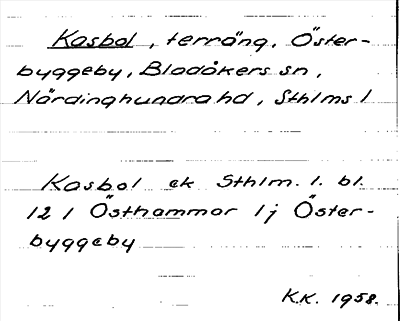 Kasbol, terräng, Öster-
byggeby, Bladåkers sn,
Närdinghundra hd, Sthlms l
Kasbol ek Sthlm. l. bl.
12 1 Östhammar lj Öster-
byggeby
K.K. 1958.